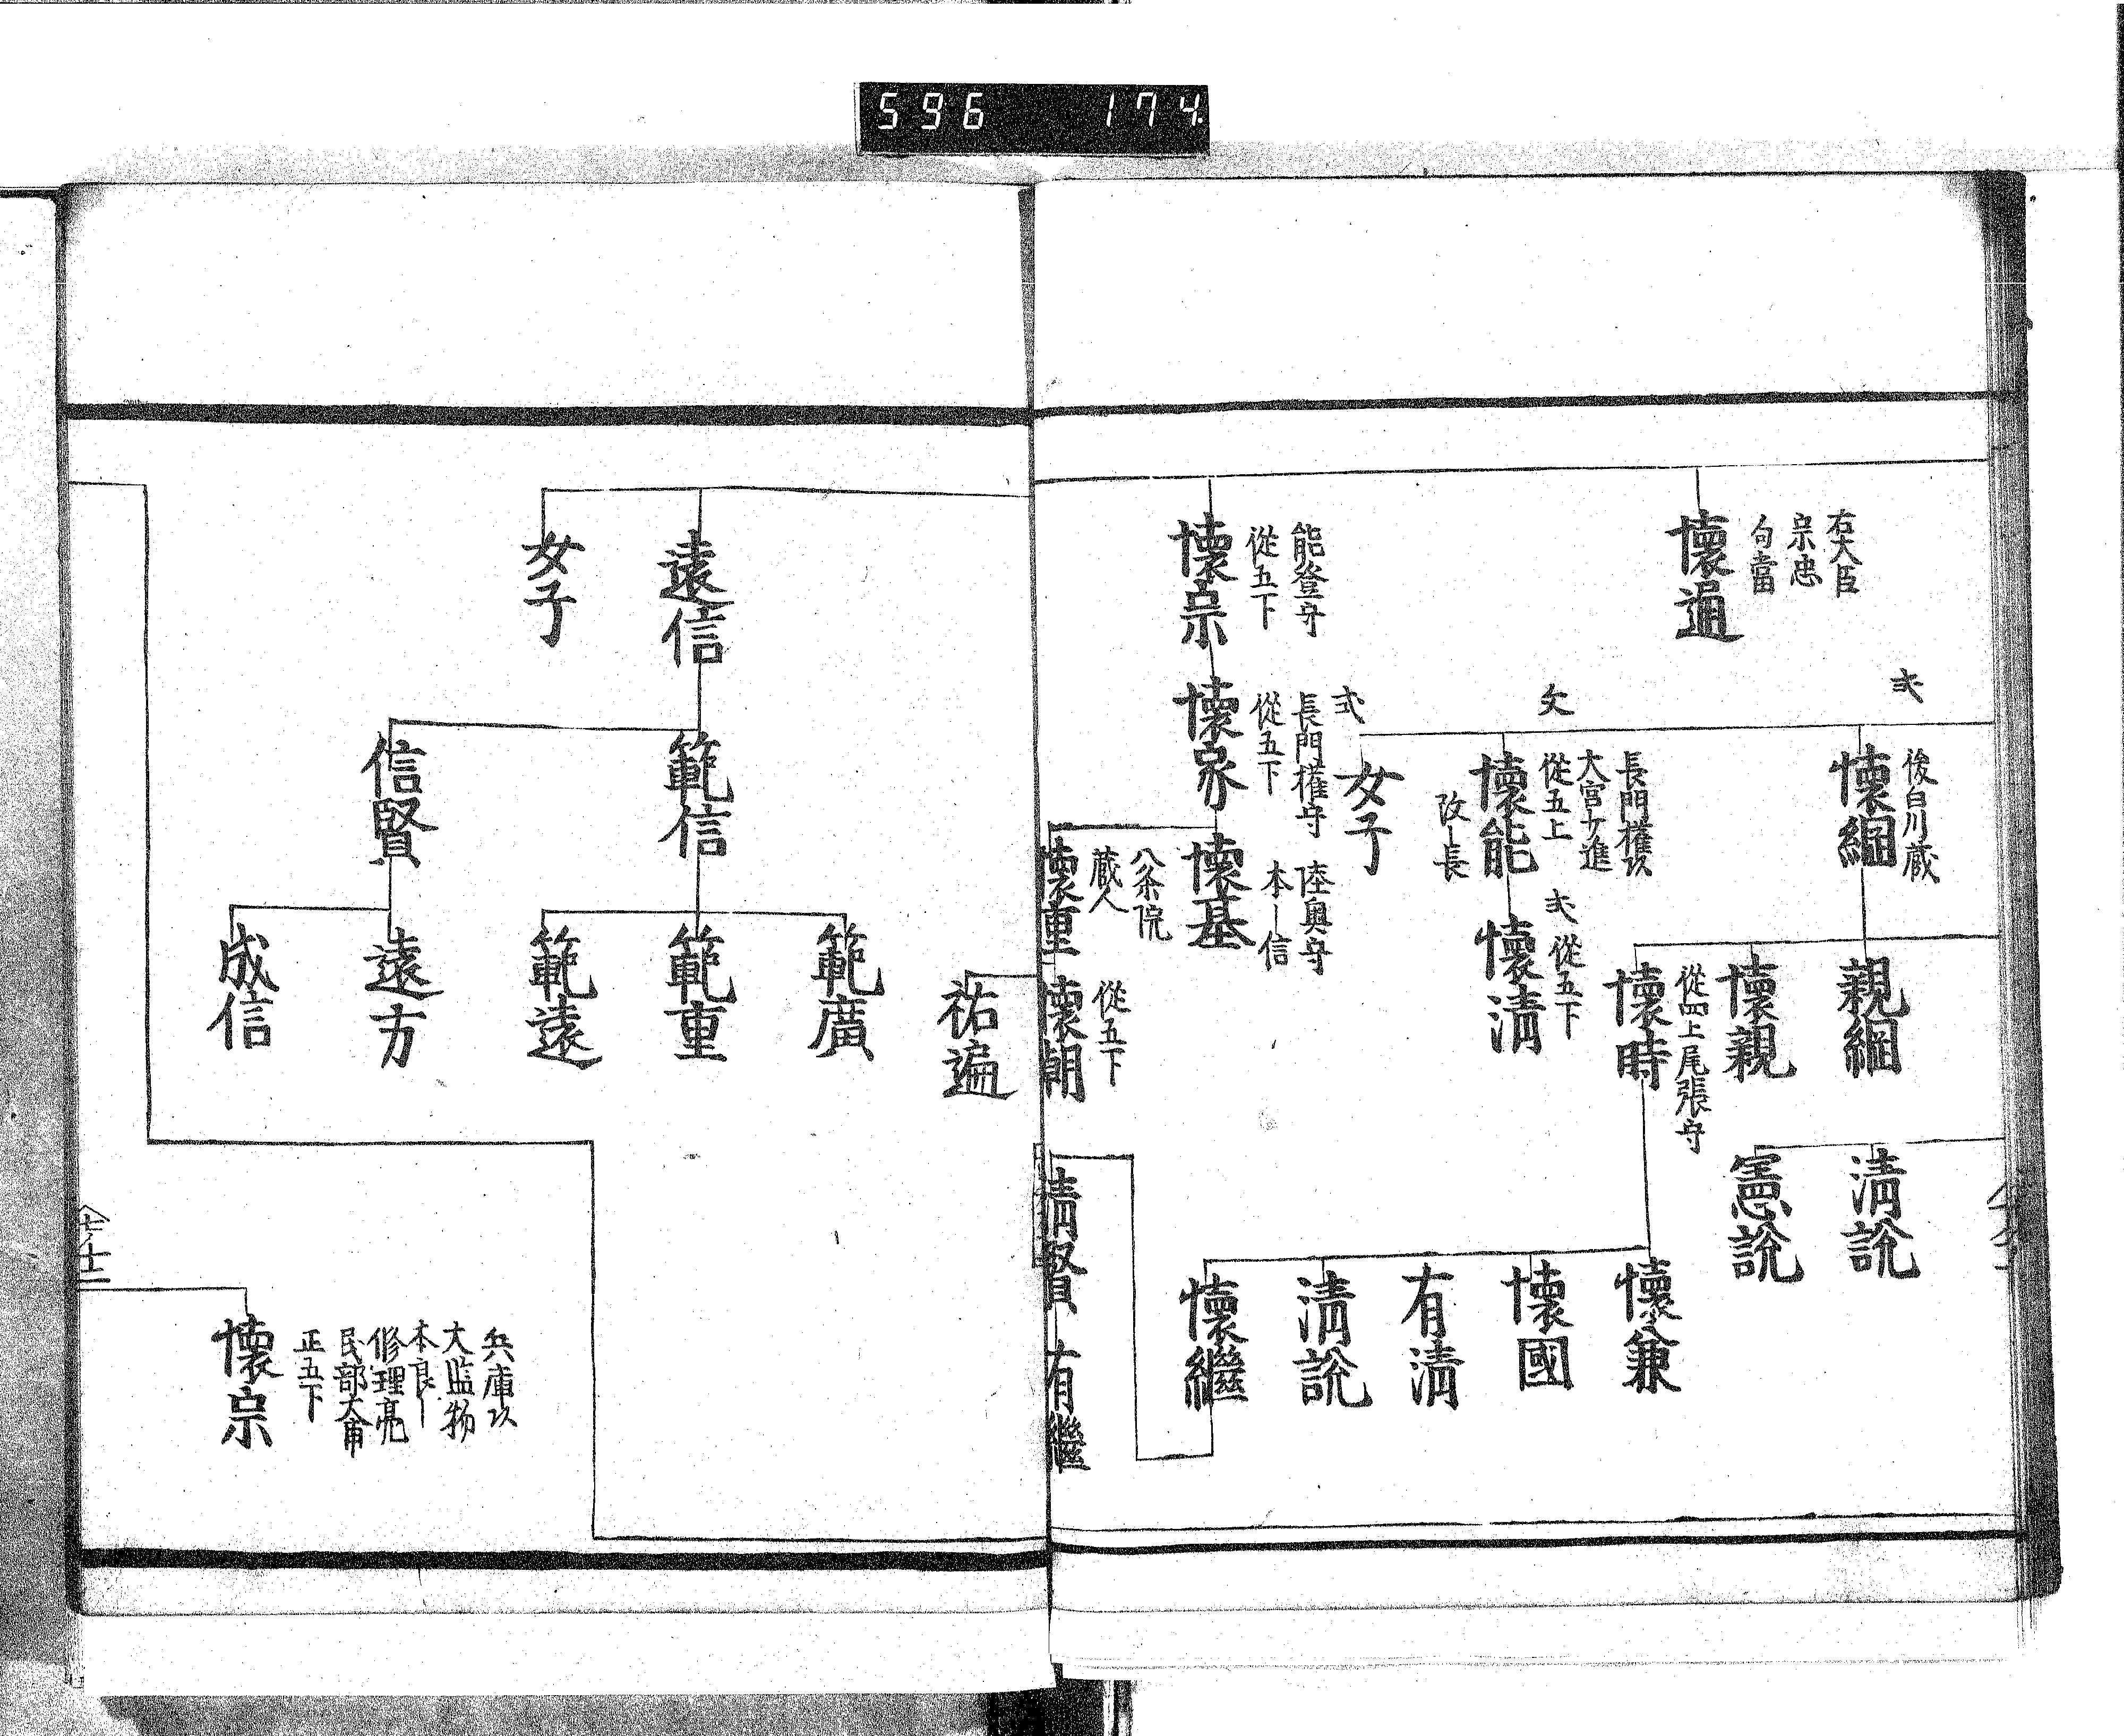 596 174
右大臣
宗忠
勾當
懷遍
弍
後白川蔵
懷綱
親綱
懷親
從四上尾張守
懷時
清說
憲說
懷兼
懷國
有清
清說
懷繼
攵
長門權以
大宮少進
從五上
懷能
改一長
弍
從五下
懷清
弍
女子
能登守
從五下
懷宗
長門權守
從五下
懷家
陸奥守
本一信
懷基
八条院
蔵人
懷重
從五下
懷朝
清賢
有繼
祐遍
遠信
女子
範信
信賢
範廣
範重
範遠
遠方
成信
兵庫以
大監物
本良一
修理亮
民部大甫
正五下
懷宗